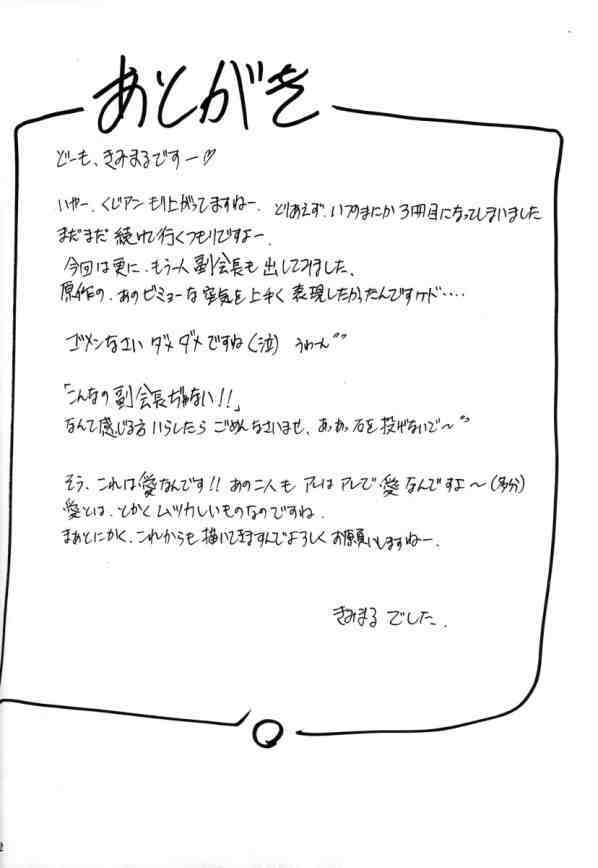 あとがき
どーも、きみまるですー♡
いやー、くじアンもり上がってますねー。とりあえず、いつのまにか3冊目になってしまいました
まだまだ続けて行くつもりですよー。
今回は更に、もう一人副会長も出してみました、
原作の、あのビミョーな空気を上手く表現したかったんですケド‥‥
ゴメンなさい ダメダメですね(泣) うわーん""
「こんなの副会長ぢゃない!!」
なんて感じる方いらしたらごめんなさいませ、あぁっ、石を投げないで〜""
そう、これは愛なんです!!あの二人もアレはアレで愛なんですよ〜(多分)
愛とは、とかくムツカしいものなのですね。
まぁとにかく、これからも描いてきますんでよろしくお願いしますねー。
きみまるでした。
2